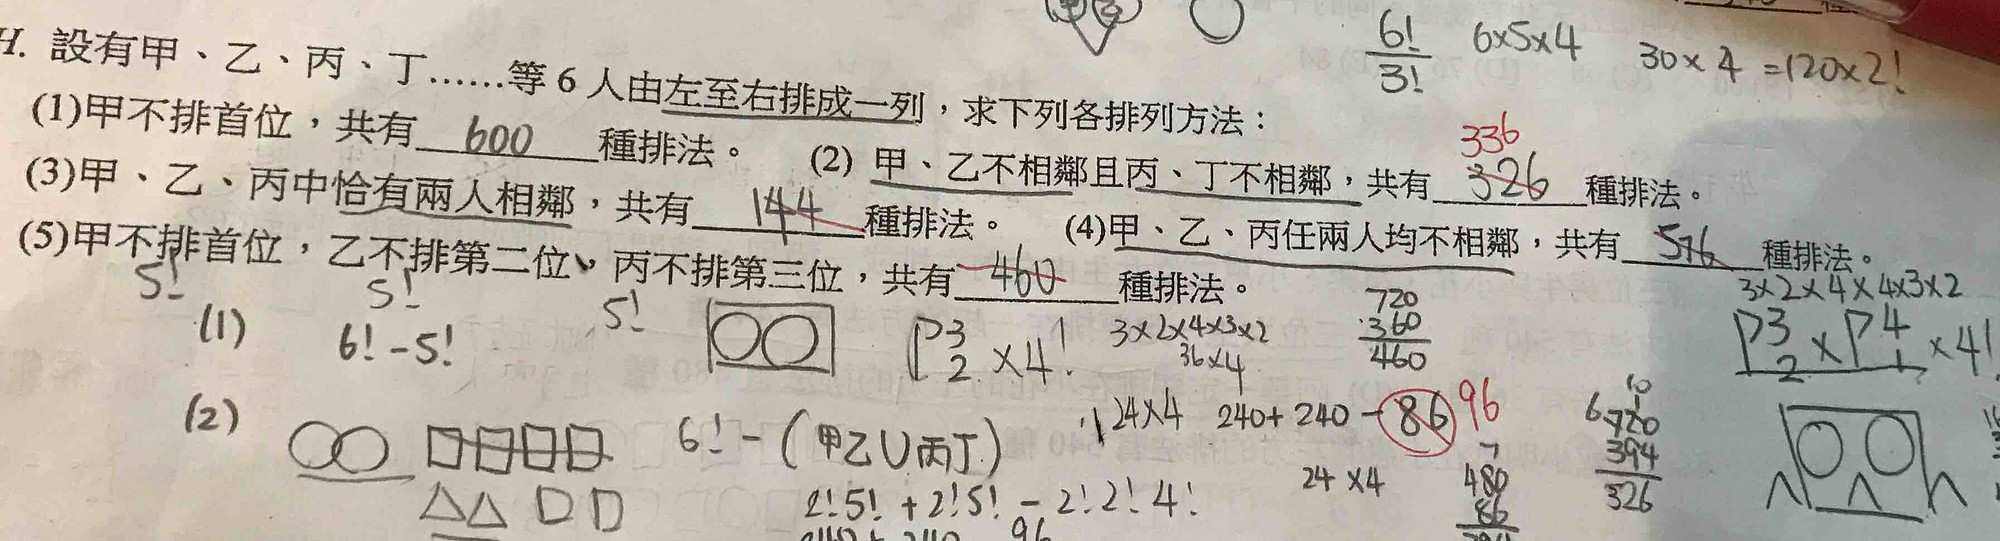 6!/3! 6×5×4 30×4 =120×2!
H. 設有甲、乙、丙、丁……等 6 人由左至右排成一列，求下列各排列方法：
(1)甲不排首位，共有 600 種排法。
336
(2) 甲、乙不相鄰且丙、丁不相鄰，共有 326 種排法。
(3)甲、乙、丙中恰有兩人相鄰，共有 144 種排法。
(4)甲、乙、丙任兩人均不相鄰，共有 576 種排法。
(5)甲不排首位，乙不排第二位，丙不排第三位，共有 460 種排法。
5! 5! 5!
(1) 6!-5!
P3 2 ×4! 3×2×4×3×2
36×4
720
360
460
3×2×4×4×3×2
P3 2 × P4 1 ×4!
(2) 6!-(甲乙∪丙丁)
24×4 240+240-86 96
2!5!+2!5!-2!2!4!
24×4
480
86
720
394
326
96